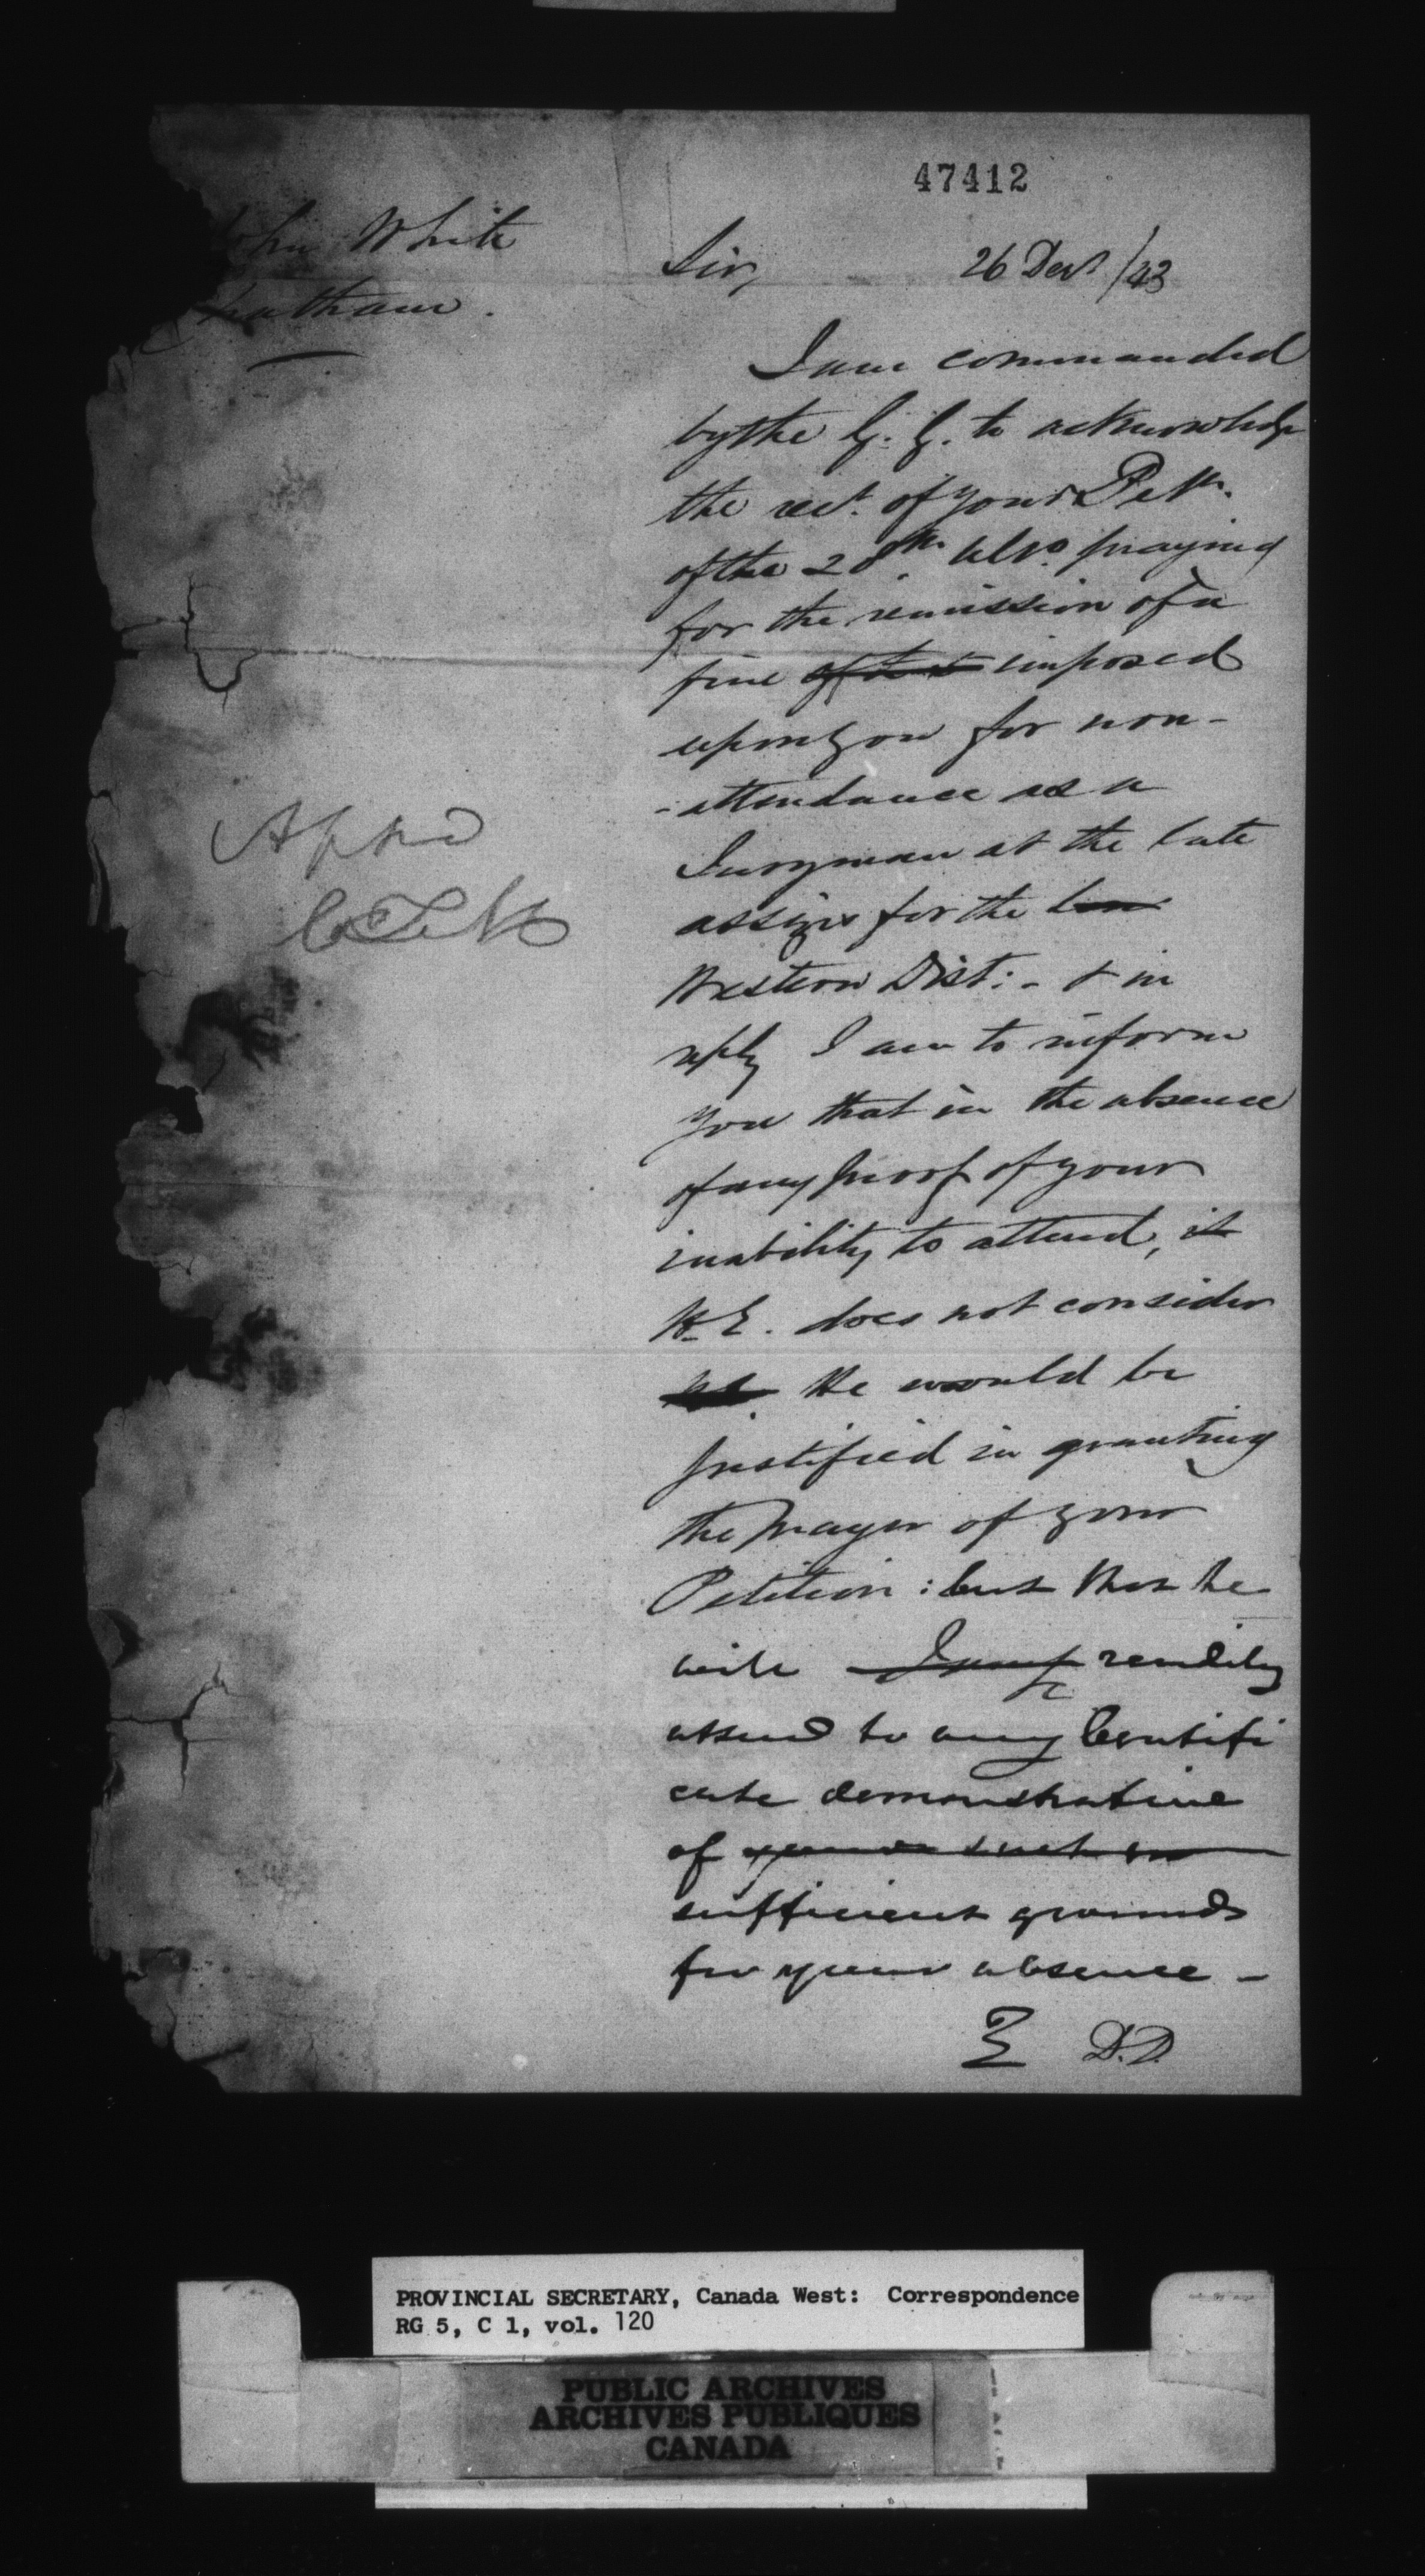 47412
John White
Chatham.
Sir, 26 Decr /43
I am commanded
by the G. G. to acknowledge
the rect. of your Petn.
of the 28th. ulto. praying
for the remission of a
fine imposed
upon you for non-
-attendance as a
Juryman at the late
assizes for the
Western Dist: - & in
reply I am to inform
you that in the absence
of any proof of your
inability to attend, it
H.E. does not consider
He would be
justified in granting
the prayer of your
Petition : but that he
will readily
attend to any Certifi
cate demonstrative
of such
sufficient grounds
for your absence -
D.D.
Appd
PROVINCIAL SECRETARY, Canada West: Correspondence
RG 5, C 1, vol. 120
PUBLIC ARCHIVES
ARCHIVES PUBLIQUES
CANADA